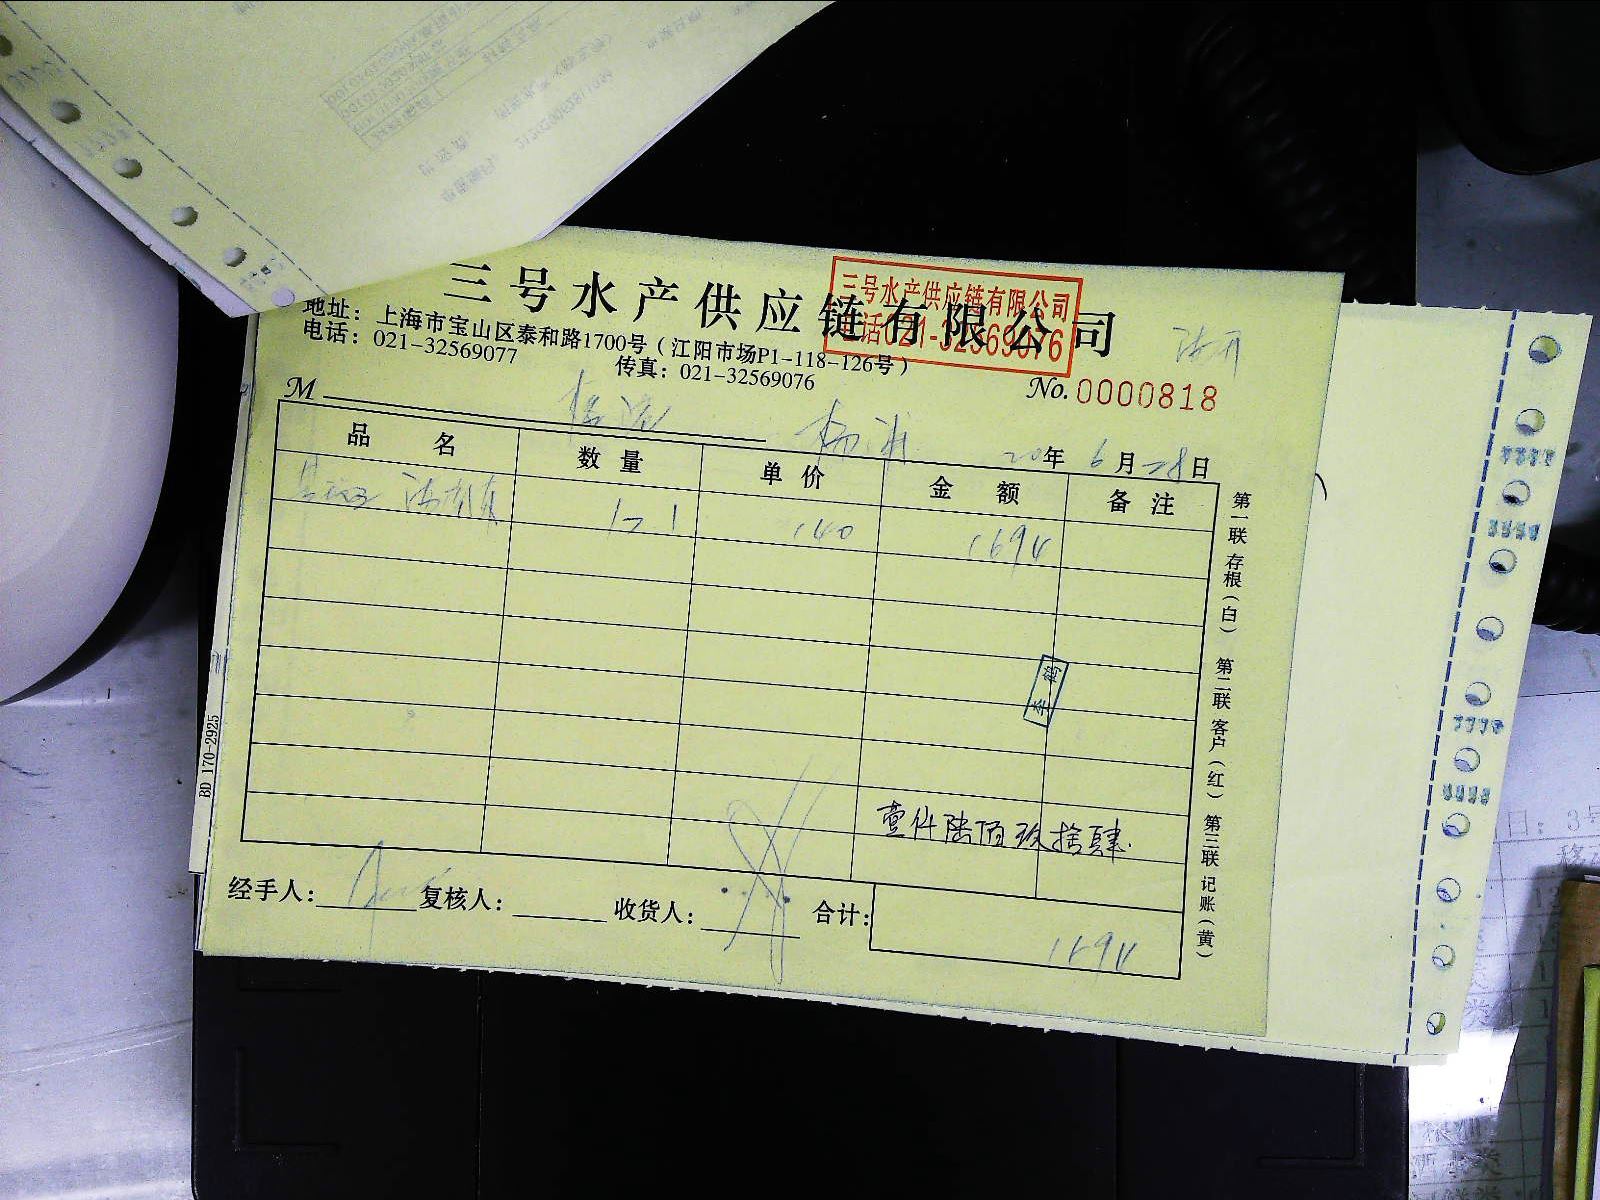 三号水产供应链有限公司
三号水产供应链有限公司
电话021-32569076
地址：上海市宝山区泰和路1700号（江阳市场P1-118-126号）
电话：021-32569077
传真：021-32569076
No.0000818
M
杨浦
20年 6月28日
品名 数量 单价 金额 备注
12.1 140 1694
壹仟陆佰玖拾肆
经手人： 复核人： 收货人： 合计：
1694
第一联 存根（白） 第二联 客户（红） 第三联 记账（黄）
BD 170-2925